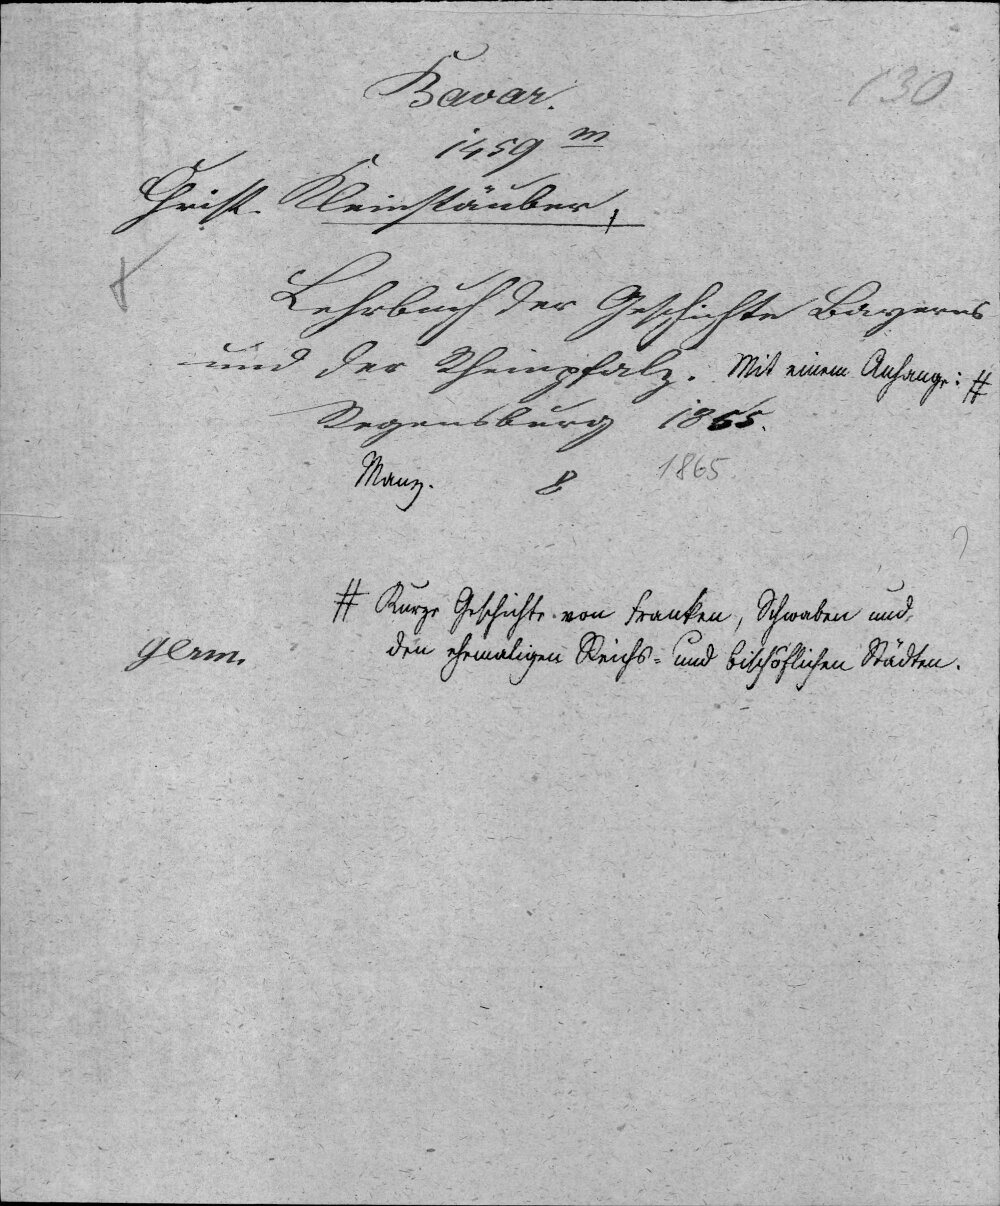 130
Bavar.
1459 m
Christ. Kleinstäuber,
Lehrbuch der Geschichte Bayerns
und der Rheinpfalz. Mit einem Anhange: #
Regensburg 1865.
Manz. 8 1865
# Kurze Geschichte von Franken, Schwaben und
den ehemaligen Reichs- und bischöflichen Städten.
germ.